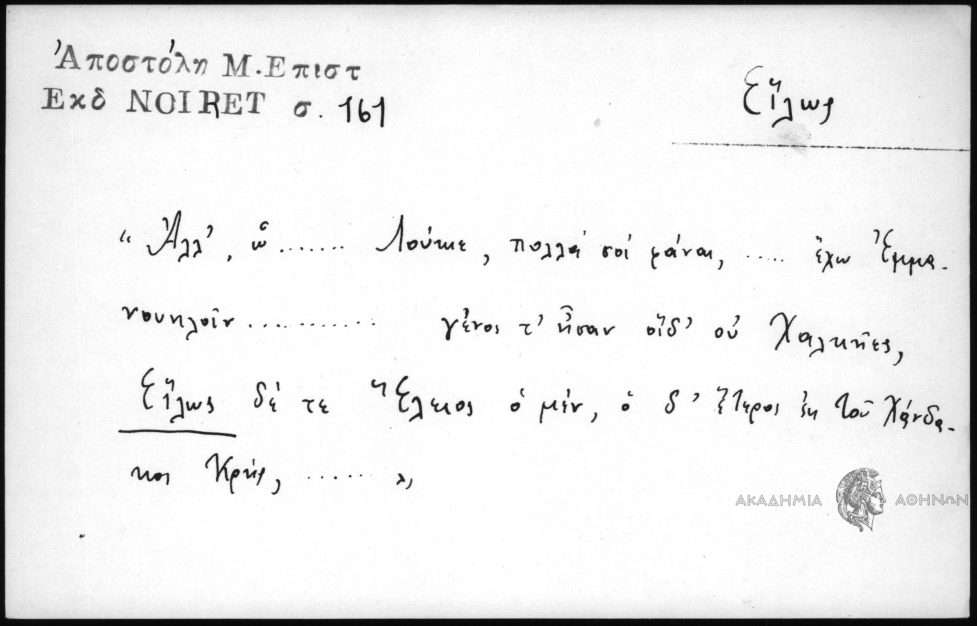 Ἀποστόλη Μ. Επιστ
Εκδ NOIRET σ. 161
Εἵλως
“Ἀλλ’, ὦ ....... Λούκιε, πολλά σοί φάναι, ..... ἔχω Ἐμμα-
νουηλοῖν ............ γένος τ’ ἦσαν οἵδ’ οὐ Χαλκῆες,
Εἵλως δέ τε Ἕλειος ὁ μέν, ὁ δ’ ἕτερος ἐκ τοῦ Χάνδα-
κος Κρής, ...... »,
ΑΚΑΔΗΜΙΑ ΑΘΗΝΩΝ